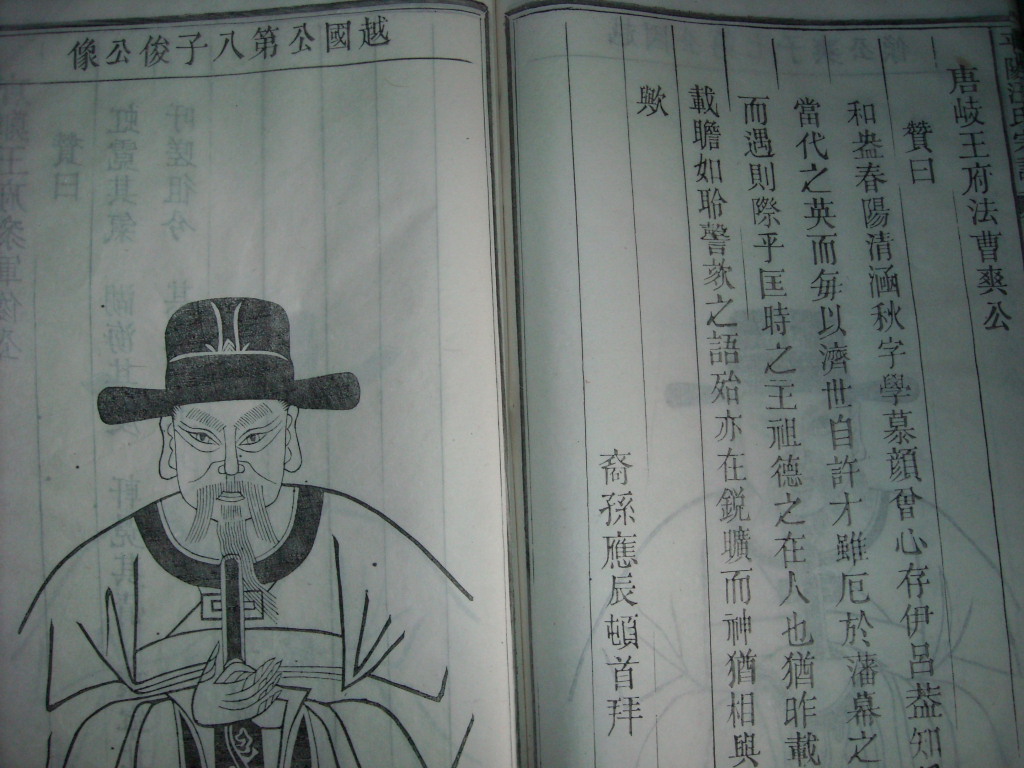 平陽汪氏宗譜
唐岐王府法曹爽公
贊曰
和盎春陽清涵秋字學慕顔曾心存伊呂葢知
當代之英而毎以濟世自許才雖厄於藩幕之
而遇則際乎匡時之王祖德之在人也猶昨載
載瞻如聆謦欬之語殆亦在銳曠而神猶相與
歟
裔孫應辰頓首拜
越國公第八子俊公像